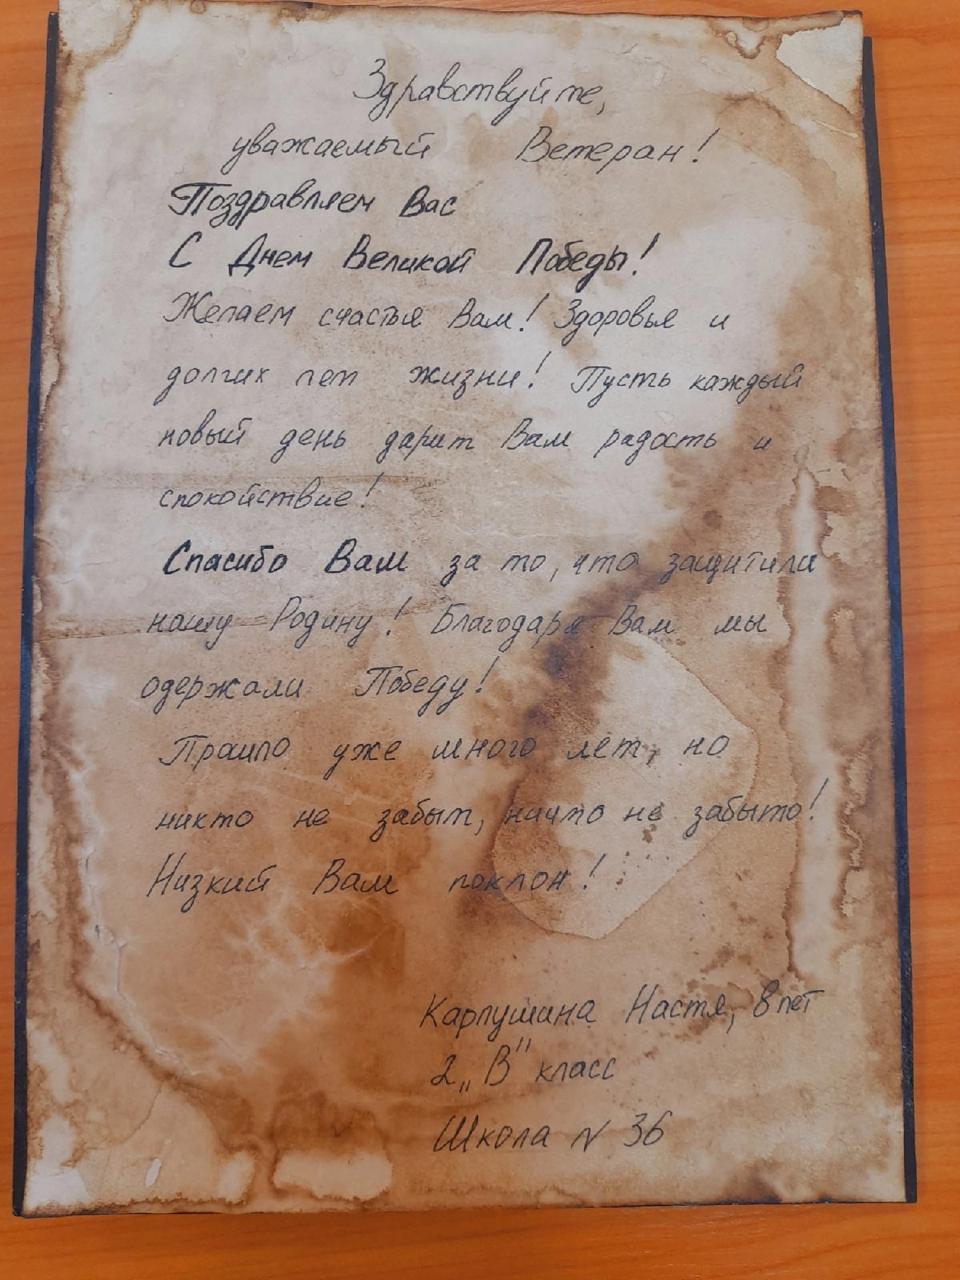 Здравствуйте,
уважаемый Ветеран!
Поздравляем Вас
С Днем Великой Победы!
Желаем счастья Вам! Здоровья и
долгих лет жизни! Пусть каждый
новый день дарит Вам радость и
спокойствие!
Спасибо Вам за то, что защитили
нашу Родину! Благодаря Вам мы
одержали Победу!
Прошло уже много лет, но
никто не забыт, ничто не забыто!
Низкий Вам поклон!
Карпушина Настя, 8 лет
2 „В" класс
Школа № 36